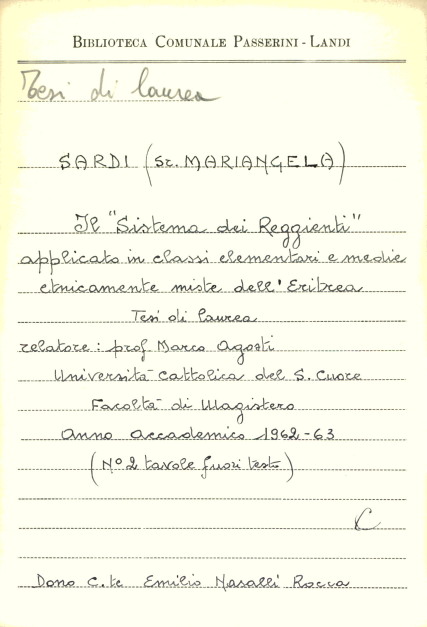 BIBLIOTECA COMUNALE PASSERINI - LANDI
Tesi di laurea
SARDI (Sr. MARIANGELA)
Il "Sistema dei Reggienti"
applicato in classi elementari e medie
etnicamente miste dell'Eritrea
Tesi di laurea
relatore: prof. Marco Agosti
Università Cattolica del S. Cuore
Facoltà di Magistero
Anno accademico 1962-63
(N° 2 tavole fuori testo)
C
Dono C.te Emilio Nasalli Rocca